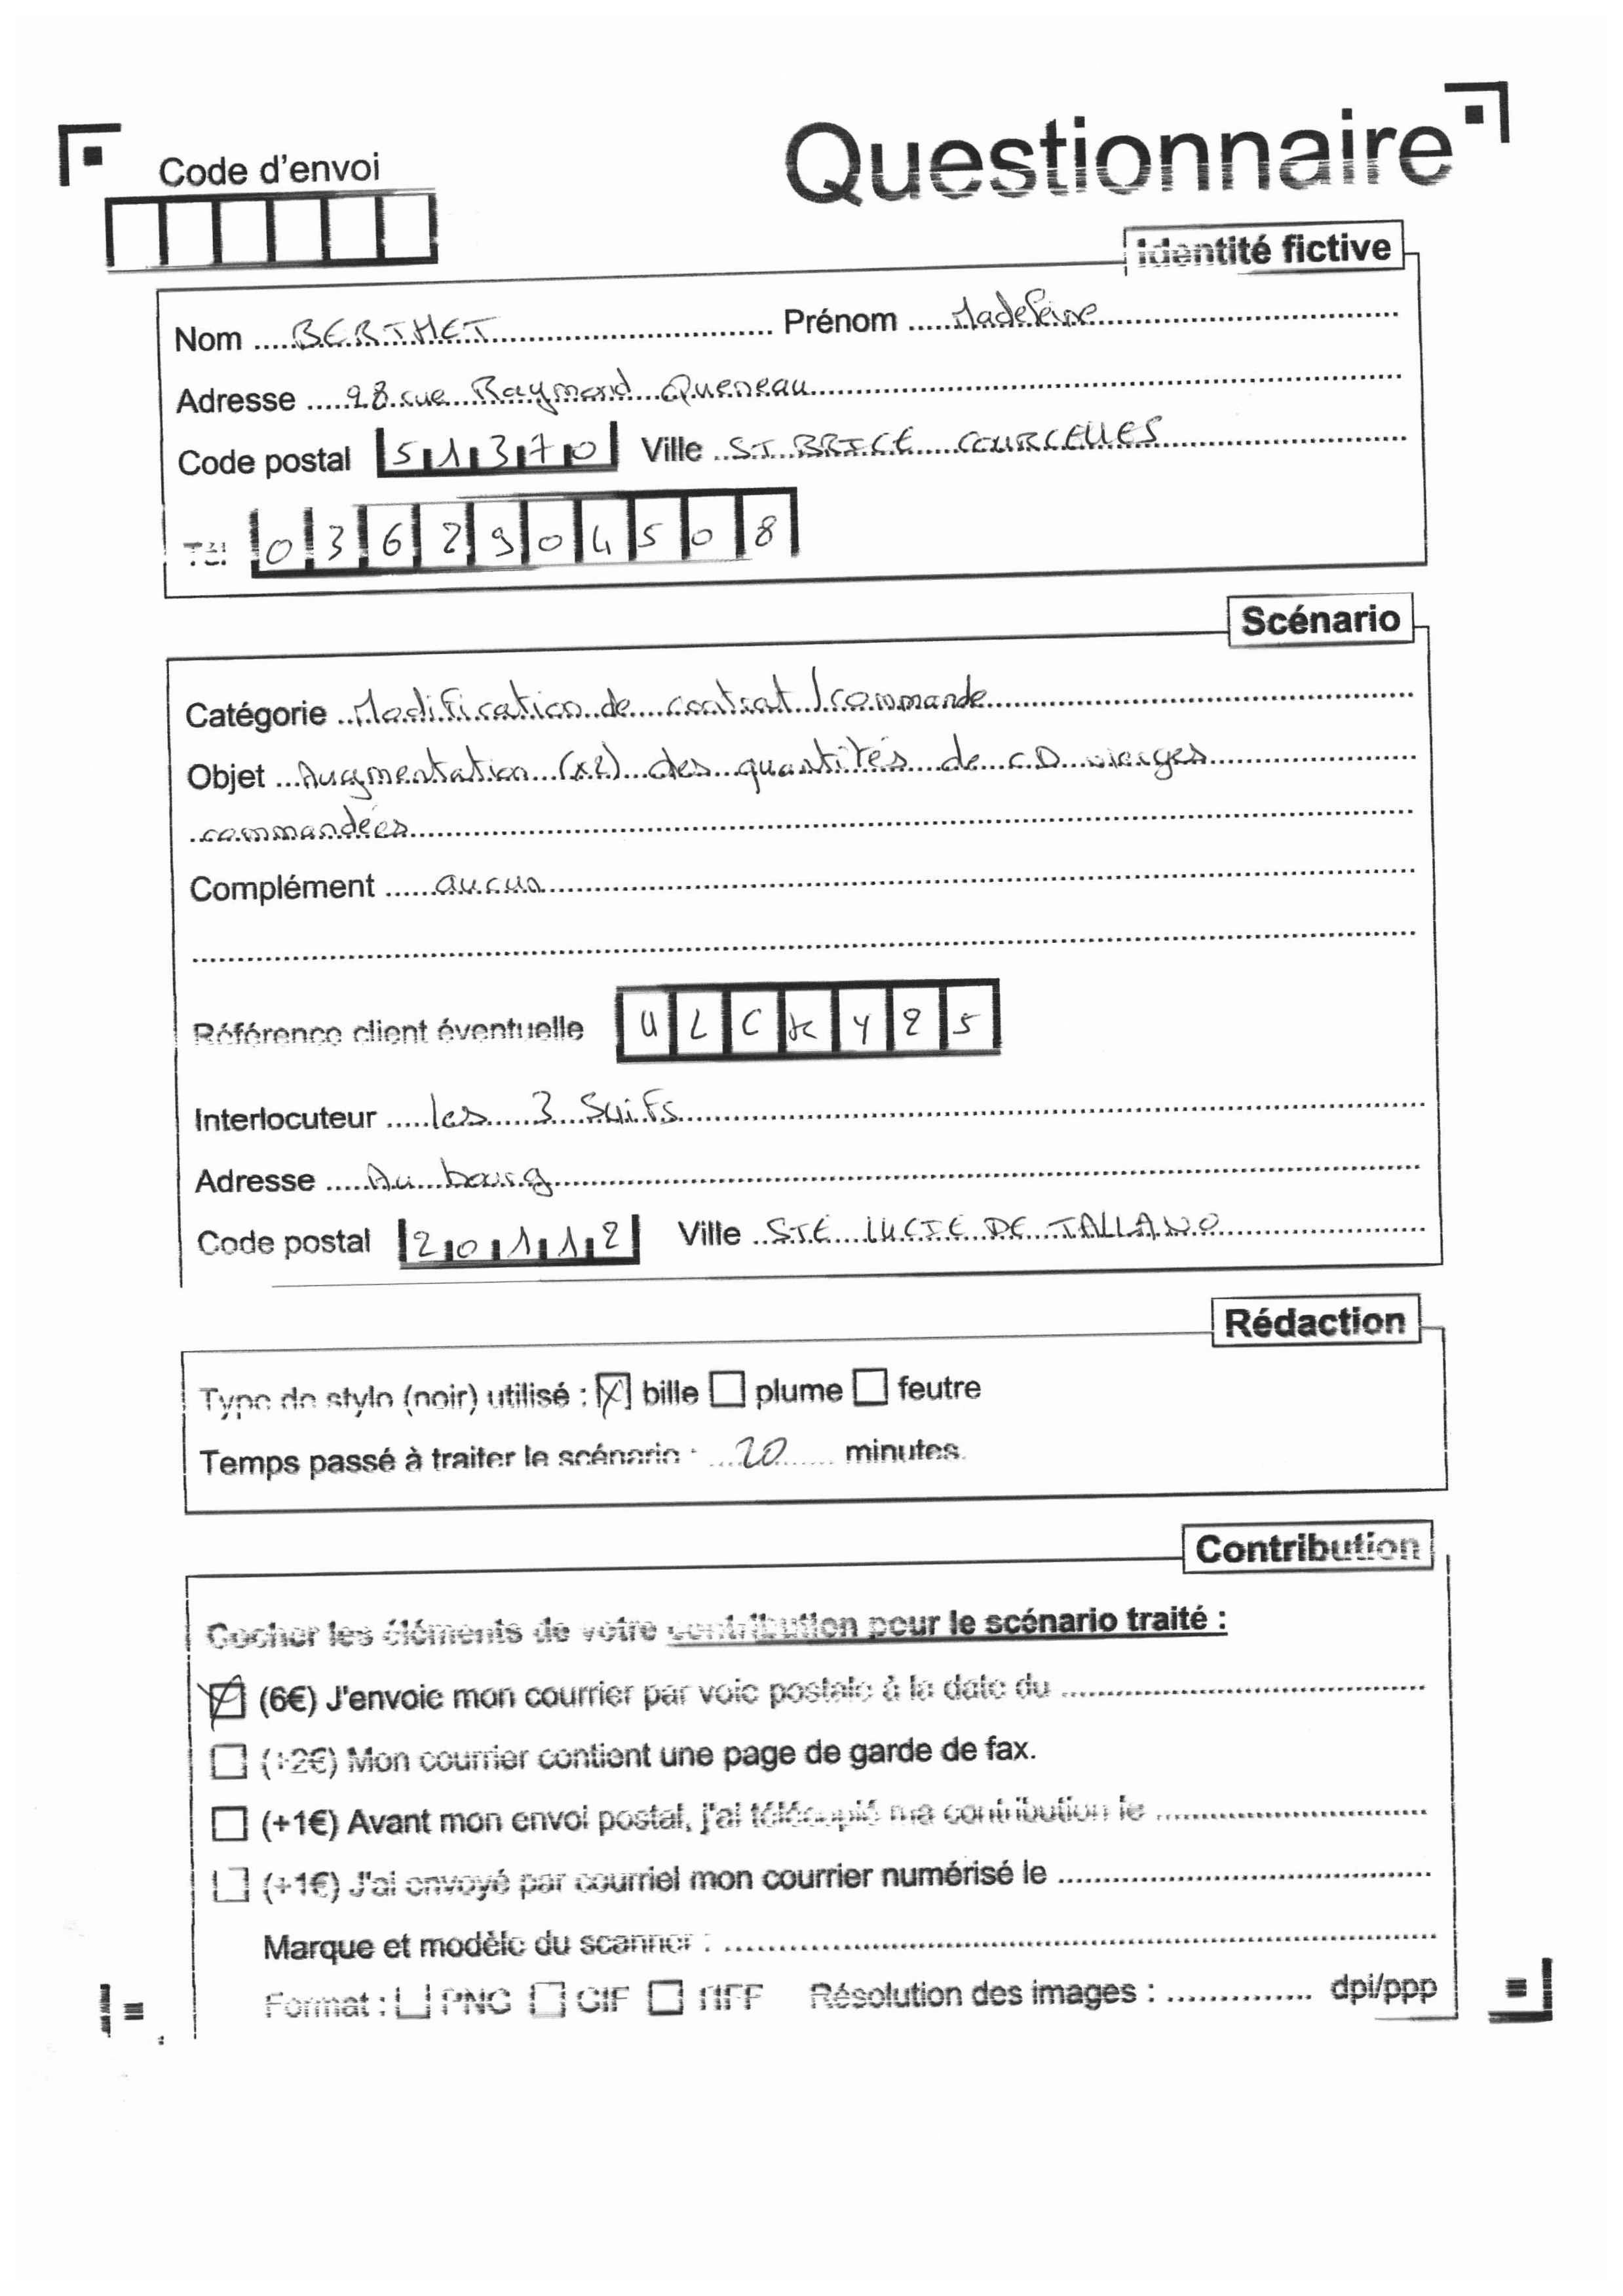 Questionnaire
Code d'envoi
Identité fictive
Nom BERTHET Prénom Madeleine
Adresse 28 rue Raymond Queneau
Code postal 51370 Ville ST BRICE COURCELLES
Tél 0362904508
Scénario
Catégorie Modification de contrat / commande
Objet Augmentation (x2) des quantités de CD vierges
commandées
Complément aucun
Référence client éventuelle ULCKY25
Interlocuteur les 3 Suifs
Adresse Au bourg
Code postal 20112 Ville STE LUCIE DE TALLANO
Rédaction
Type de stylo (noir) utilisé : bille plume feutre
Temps passé à traiter le scénario : 20 minutes.
Contribution
Cocher les éléments de votre contribution pour le scénario traité :
(6€) J'envoie mon courrier par voie postale à la date du
(+2€) Mon courrier contient une page de garde de fax.
(+1€) Avant mon envoi postal, j'ai télécopié ma contribution le
(+1€) J'ai envoyé par courriel mon courrier numérisé le
Marque et modèle du scanner :
Format : PNG GIF TIFF Résolution des images : dpi/ppp